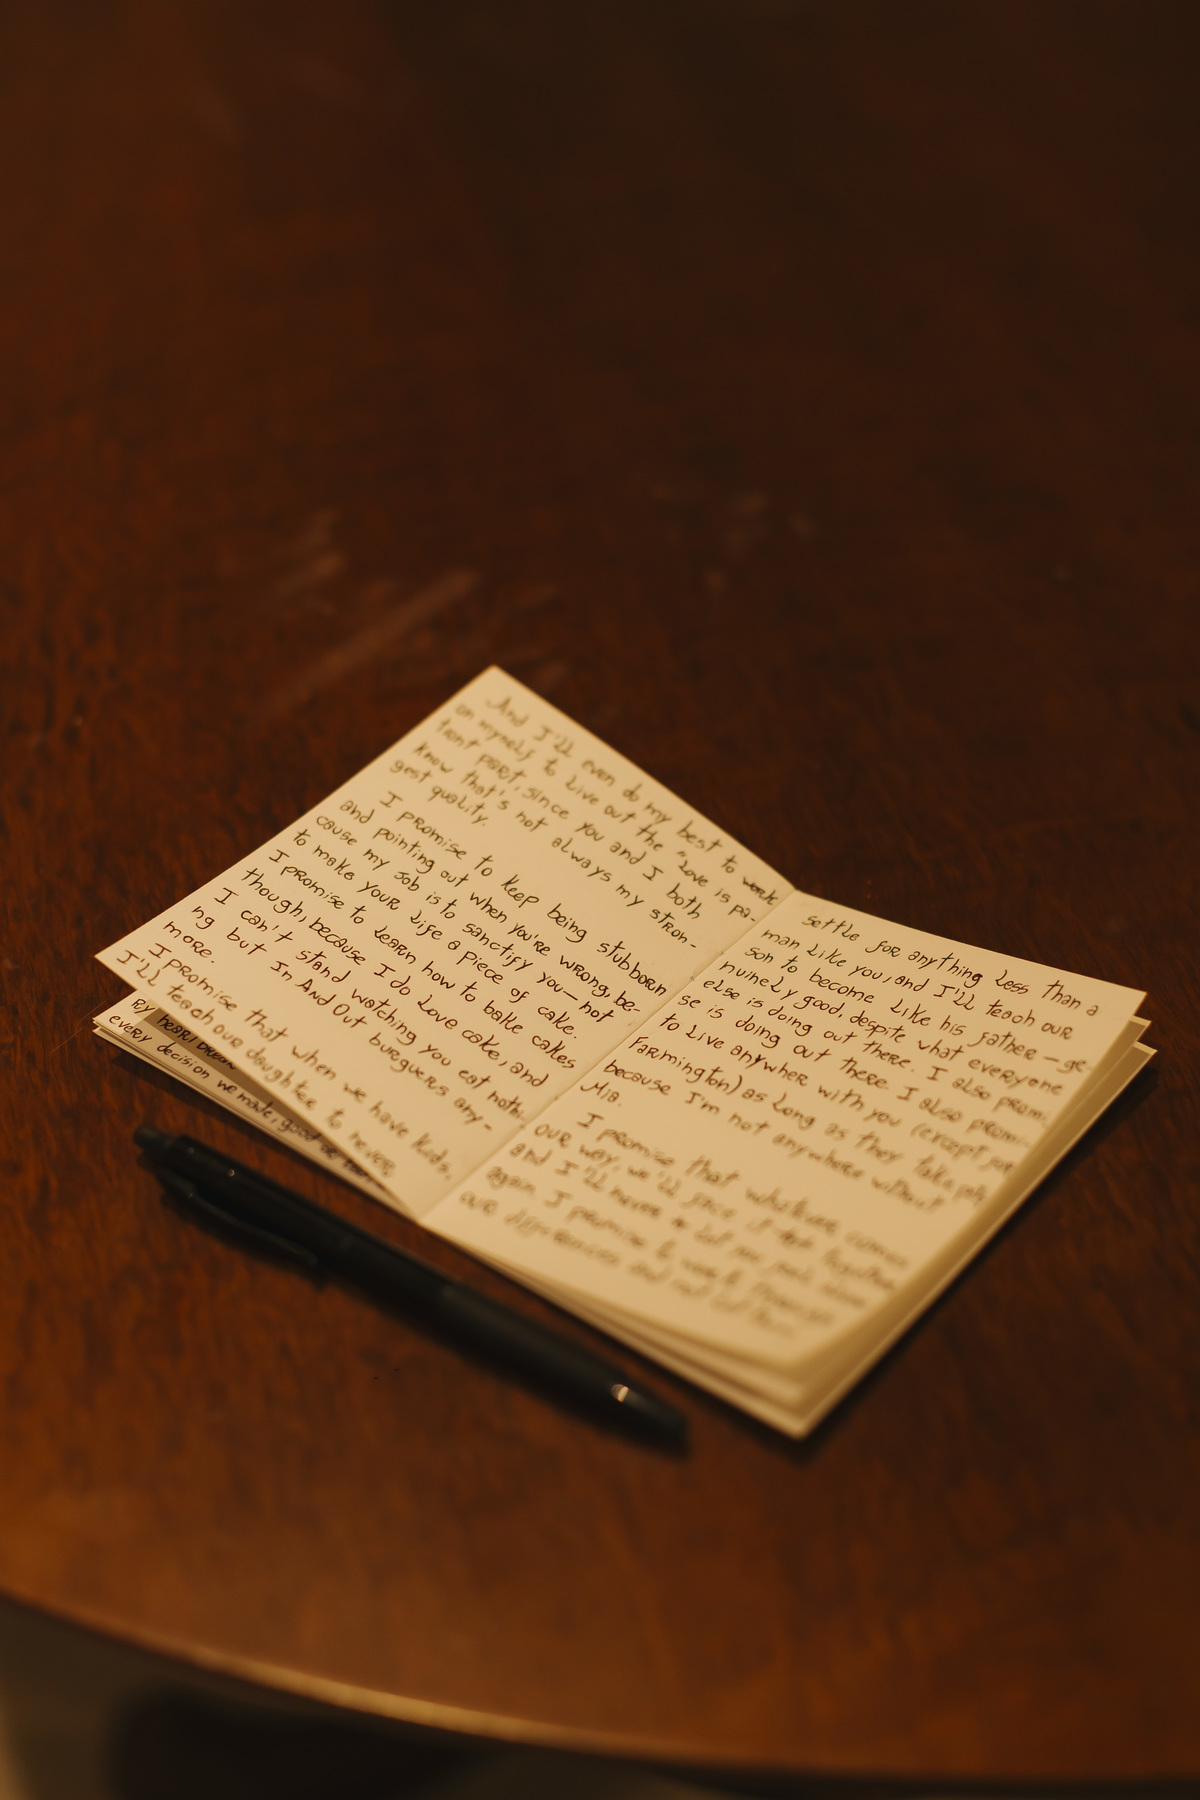 And I'll even do my best to work
on myself to live out the "Love is pa-
tient part, since you and I both
know that's not always my stron-
gest quality.
I promise to keep being stubborn
and pointing out when you're wrong, be-
cause my job is to sanctify you—not
to make your life a piece of cake.
I promise to learn how to bake cakes
though, because I do love cake, and
I can't stand watching you eat nothi-
ng but In And Out burguers any-
more.
I promise that when we have kids,
I'll teach our daughter to never
settle for anything less than a
man like you, and I'll teach our
son to become like his father—ge-
nuinely good, despite what everyone
else is doing out there. I also promi-
se is doing out there. I also promi-
to live anywher with you (except for
Farmington) as long as they take
because I'm not anywhere without
Mia.
I promise that whatever comes
our way, we'll face it together
and I'll never let
again. I promise to
our differences and not let
every decision we made, good or